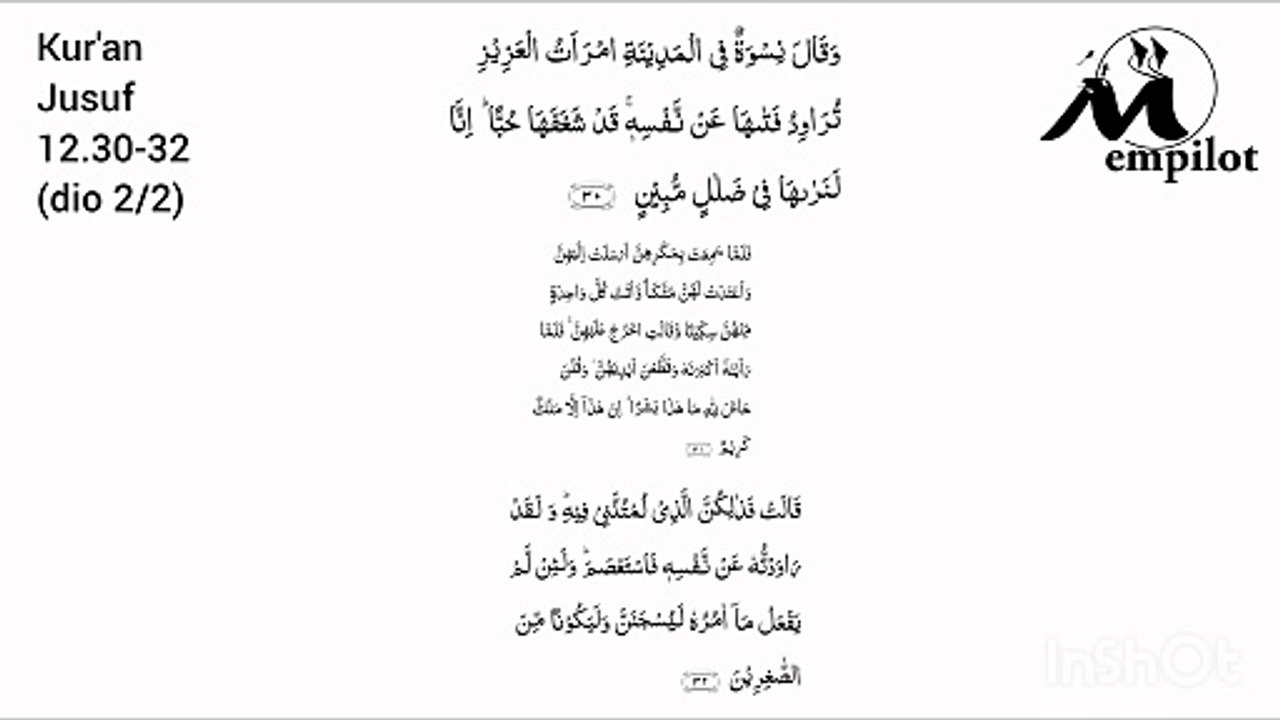 Kur'an
Jusuf
12.30-32
(dio 2/2)
وَقَالَ نِسْوَةٌ فِي الْمَدِيْنَةِ امْرَاَتُ الْعَزِيْزِ
تُرَاوِدُ فَتٰىهَا عَنْ نَّفْسِهٖۚ قَدْ شَغَفَهَا حُبًّاۗ اِنَّا
لَنَرٰىهَا فِيْ ضَلٰلٍ مُّبِيْنٍ ٣٠
فَلَمَّا سَمِعَتْ بِمَكْرِهِنَّ اَرْسَلَتْ اِلَيْهِنَّ
وَاَعْتَدَتْ لَهُنَّ مُتَّكَاً وَّاٰتَتْ كُلَّ وَاحِدَةٍ
مِّنْهُنَّ سِكِّيْنًا وَّقَالَتِ اخْرُجْ عَلَيْهِنَّۚ فَلَمَّا
رَاَيْنَهٗٓ اَكْبَرْنَهٗ وَقَطَّعْنَ اَيْدِيَهُنَّۖ وَقُلْنَ
حَاشَ لِلّٰهِ مَا هٰذَا بَشَرًاۗ اِنْ هٰذَآ اِلَّا مَلَكٌ
كَرِيْمٌ ٣١
قَالَتْ فَذٰلِكُنَّ الَّذِيْ لُمْتُنَّنِيْ فِيْهِۗ وَلَقَدْ
رَاوَدْتُّهٗ عَنْ نَّفْسِهٖ فَاسْتَعْصَمَۗ وَلَئِنْ لَّمْ
يَفْعَلْ مَآ اٰمُرُهٗ لَيُسْجَنَنَّ وَلَيَكُوْنًا مِّنَ
الصّٰغِرِيْنَ ٣٢
Mempilot
InShOt